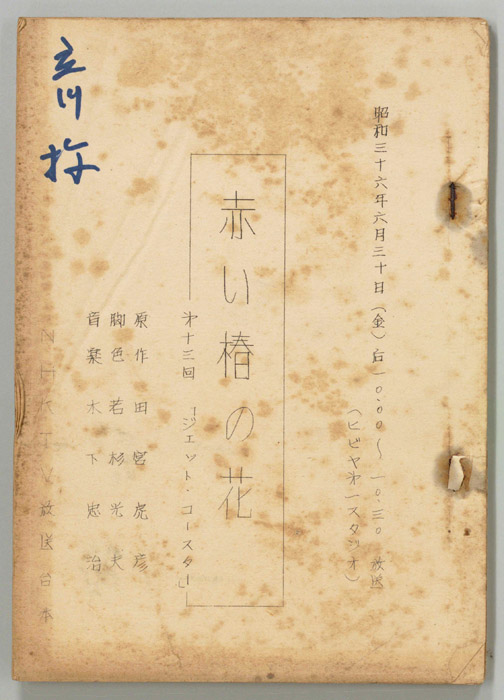 昭和三十六年六月三十日(金)后一〇.〇〇〜一〇.三〇放送
(ヒビヤ㐧一スタジオ)
赤い椿の花
㐧十三回「ジェット・コースター」
原作 田宮虎彦
脚色 若杉光夫
音楽 木下忠治
NHKTV放送台本
立川